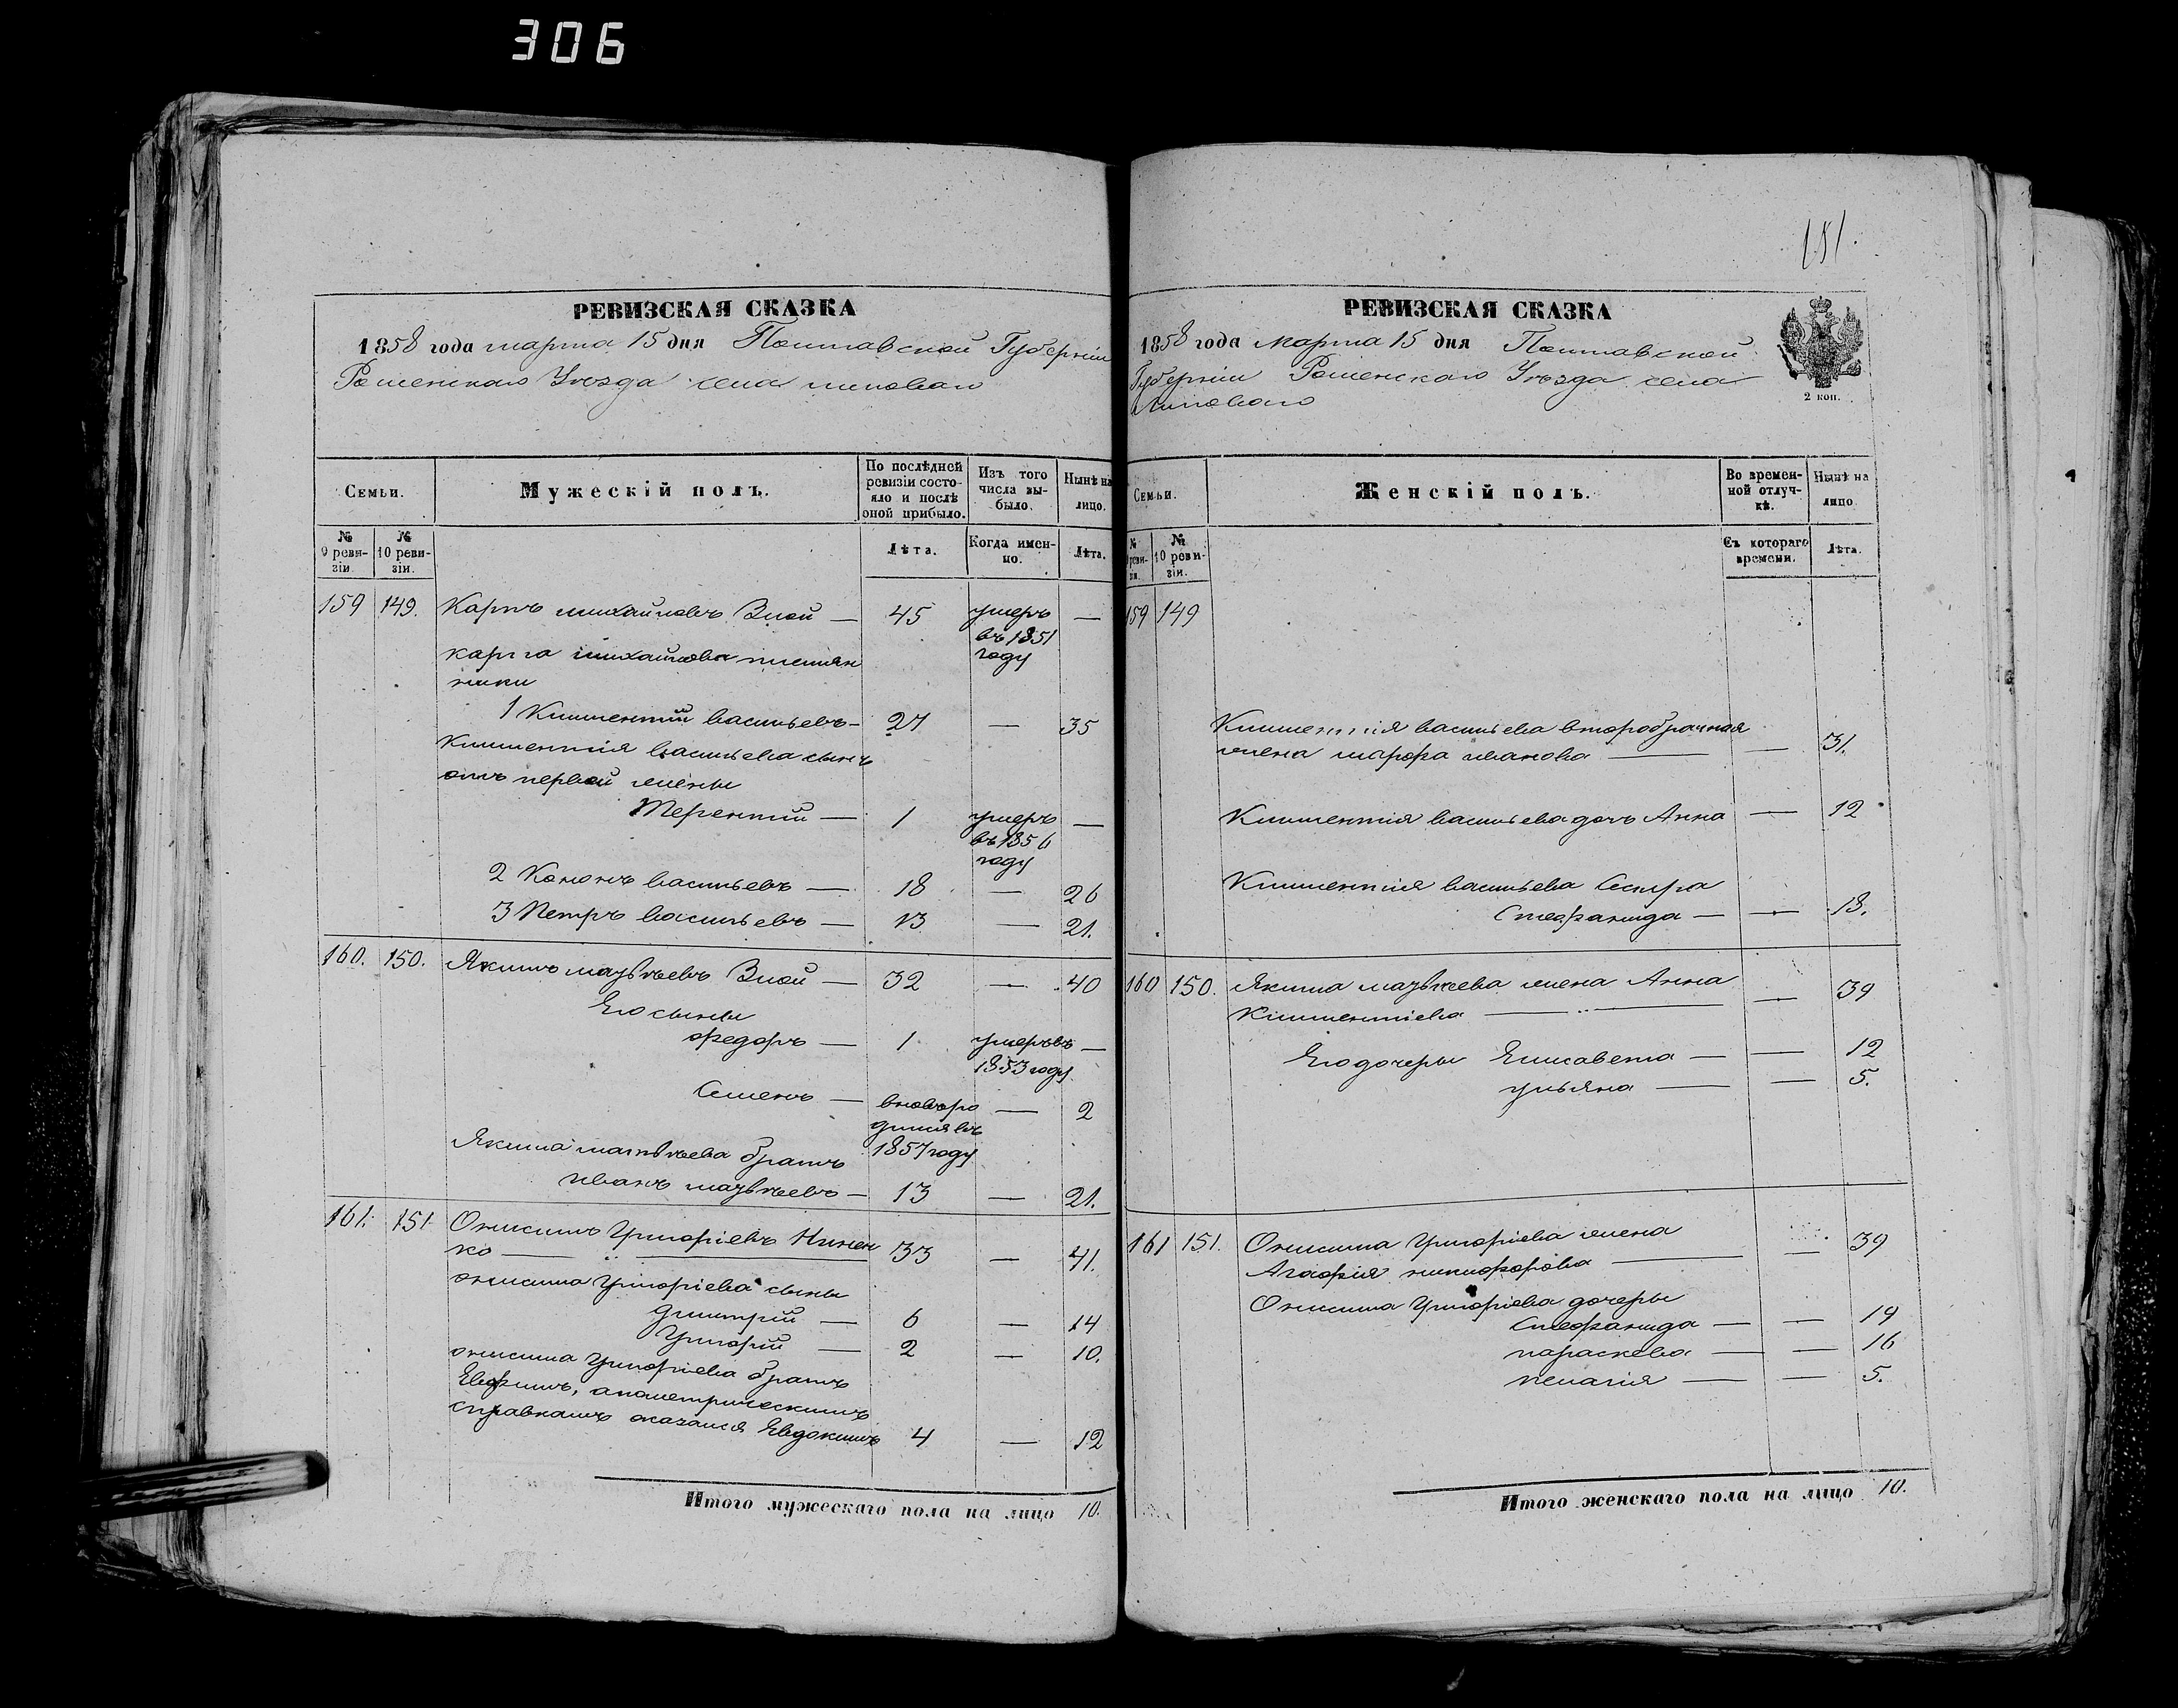 306
151.
РЕВИЗСКАЯ СКАЗКА
1858 года марта 15 дня Полтавской Губерніи
Роменскаго Уѣзда села липоваго
Семьи.
Мужескій полъ.
По послѣдней ревизіи состояло и послѣ оной прибыло.
Изъ того числа выбыло.
Нынѣ на лицо.
№ 9 ревизіи.
№ 10 ревизіи.
Лѣта.
Когда именно.
Лѣта.
159 149. Карпъ михайловъ Злой — 45 умеръ въ 1851 году —
карпа михайлова племян
ники
1 Климентий васильевъ — 27 — 35
Климентія васильева сынъ
отъ первой жены
Терентий — 1 умеръ въ 1856 году —
2 Кононъ васильевъ — 18 — 26
3 Петръ васильевъ — 13 — 21.
160. 150. Якимъ матвѣевъ Злой — 32 — 40
Его сыны
федоръ — 1 умеръ въ 1853 году —
Семенъ — вновь родился въ 1857 году — 2
Якима матвѣева братъ
иванъ матвѣевъ — 13 — 21.
161. 151 Онисимъ Григоріевъ
ко — 33 — 41.
онисима Григоріева сыны
Дмитрій — 6 — 14
Григорій — 2 — 10.
онисима Григоріева братъ
Евфимъ, апометрическимъ
справкамъ оказался Евдокимъ 4 — 12
Итого мужескаго пола на лицо 10.
РЕВИЗСКАЯ СКАЗКА
1858 года марта 15 дня Полтавской
Губерніи Роменскаго Уѣзда села
Липоваго
2 коп.
Семьи.
Женскій полъ.
Во временной отлучкѣ.
Нынѣ на лицо.
№ 9 ревизіи.
№ 10 ревизіи.
Съ котораго времени.
Лѣта.
159 149
Климентія васильева второбрачная
жена марфа иванова — — 31.
Климентія васильева дочь Анна — 12
Климентія васильева Сестра
Стефанида — — 18.
160 150. Якима матвѣева жена Анна
Климентіева — — 39
Его дочеры Елисавета — — 12
ульяна — — 5.
161 151. Онисима Григоріева жена
Агафія никифорова — — 39
Онисима Григоріева дочеры
Стефанида — — 19
параскева — — 16
пелагія — — 5.
Итого женскаго пола на лицо 10.